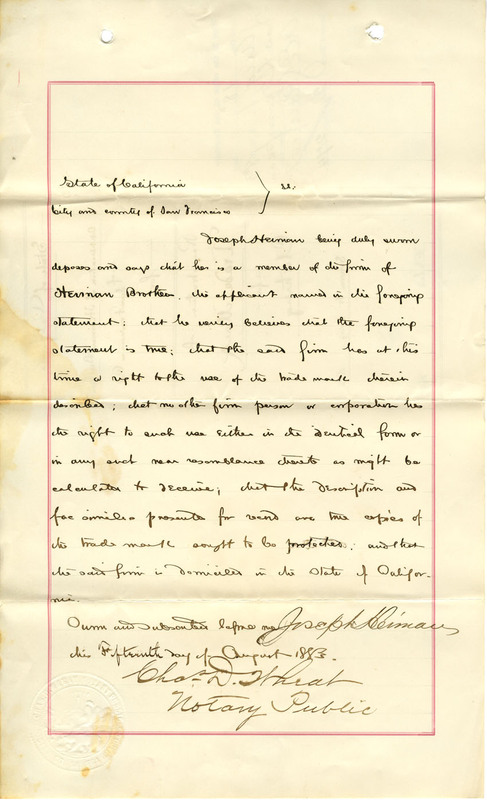 State of California } ss.
City and county of San Francisco
Joseph Heiman being duly sworn
deposes and says that he is a member of the firm of
Heiman Brothers, the applicant named in the foregoing
statement; that he verily believes that the foregoing
statement is true; that the said firm has at this
time a right to the use of the trade mark therein
described; that no other firm person or corporation has
the right to such use either in the identical form or
in any such near resemblance thereto as might be
calculated to deceive; that the description and
fac similes presented for record are true copies of
the trade mark sought to be protected; and that
the said firm is domiciled in the State of Califor-
nia.
Sworn and subscribed before me Joseph Heiman
this Fifteenth day of August 1883.
Chas. D. Wheat
Notary Public